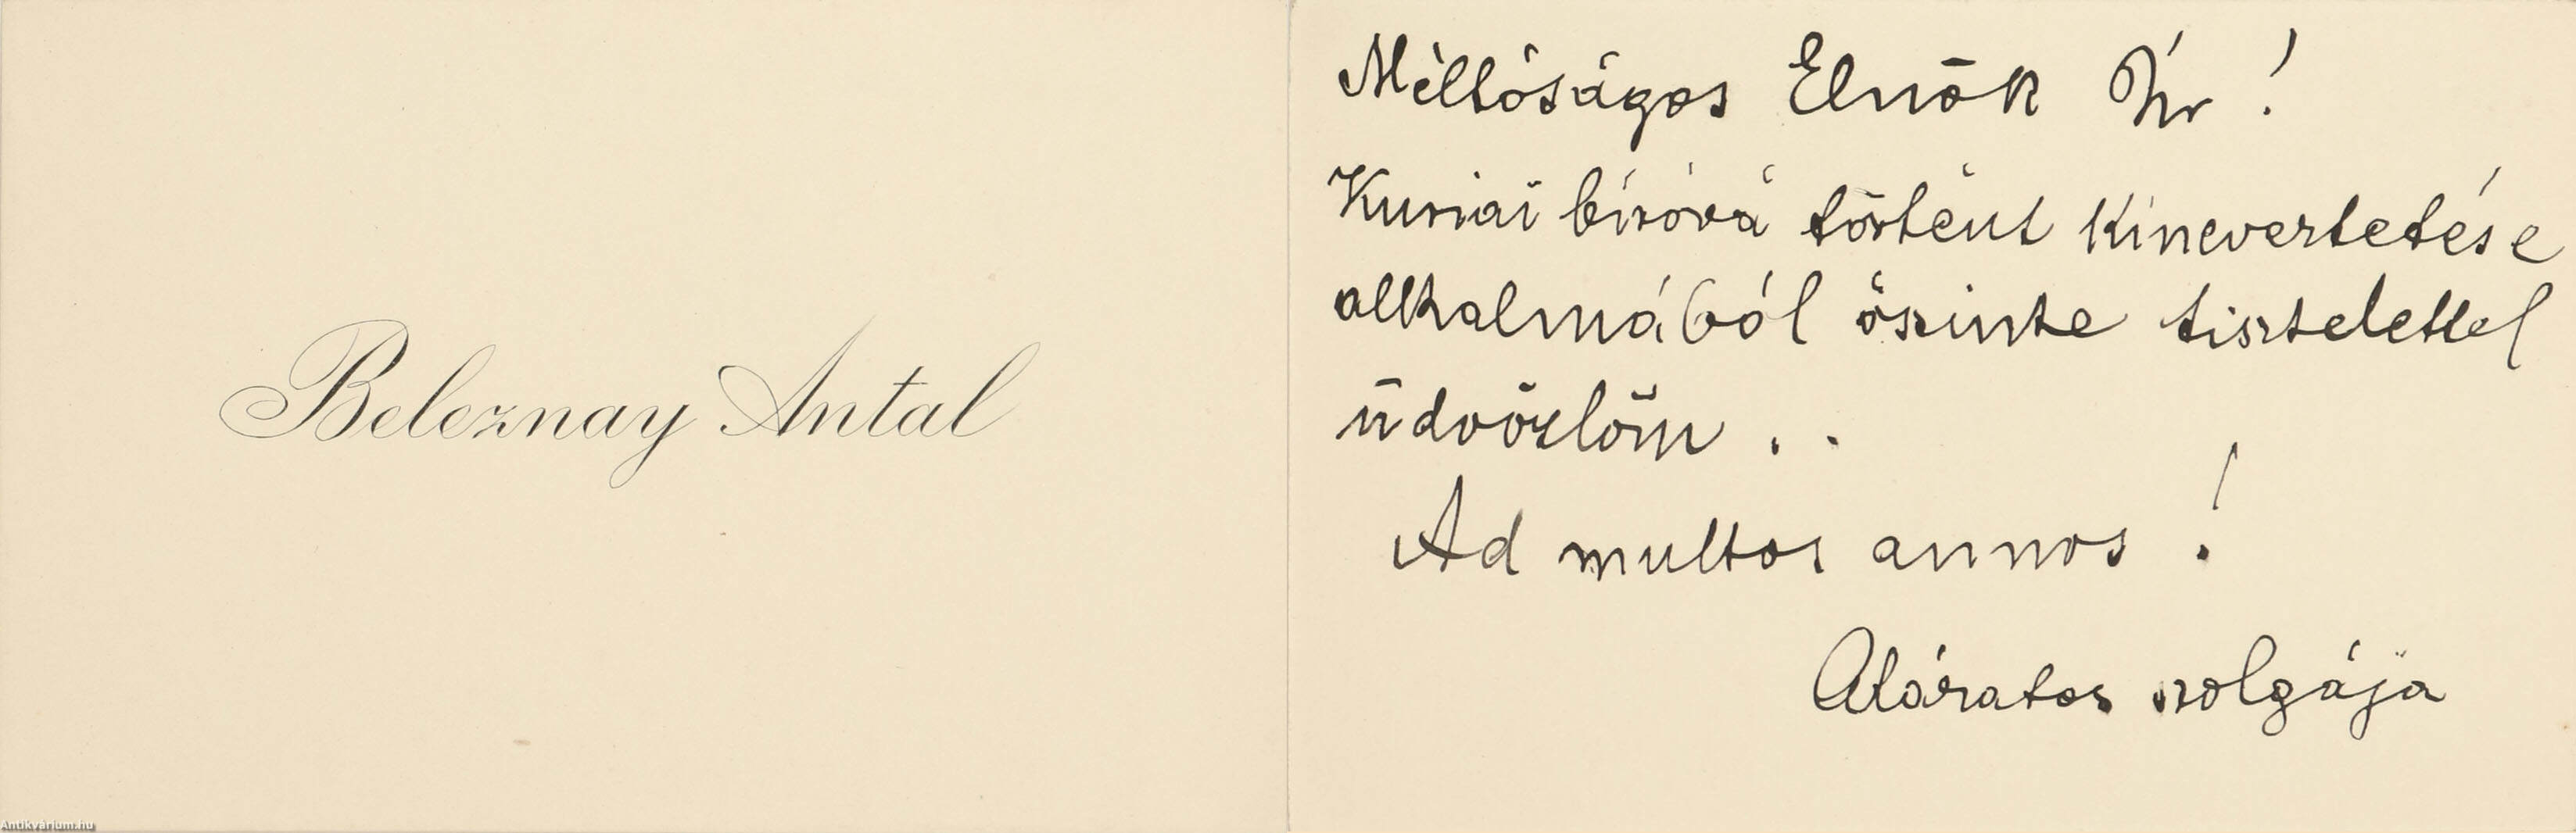 Beleznay Antal
Méltóságos Elnök Úr!
Kuriai bíróvá történt kineveztetése
alkalmából öszinte tisztelettel
üdvözlöm . .
Ad multos annos!
Alázatos szolgája
Antikvárium.hu